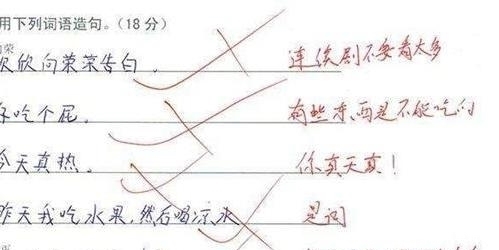 用下列词语造句。(18 分)
荣
欣欣向荣荣告白。 连续剧不要看太多
好吃个屁。 有些东西是不能吃的
今天真热。 你真天真!
昨天我吃水果,然后喝凉水 是词